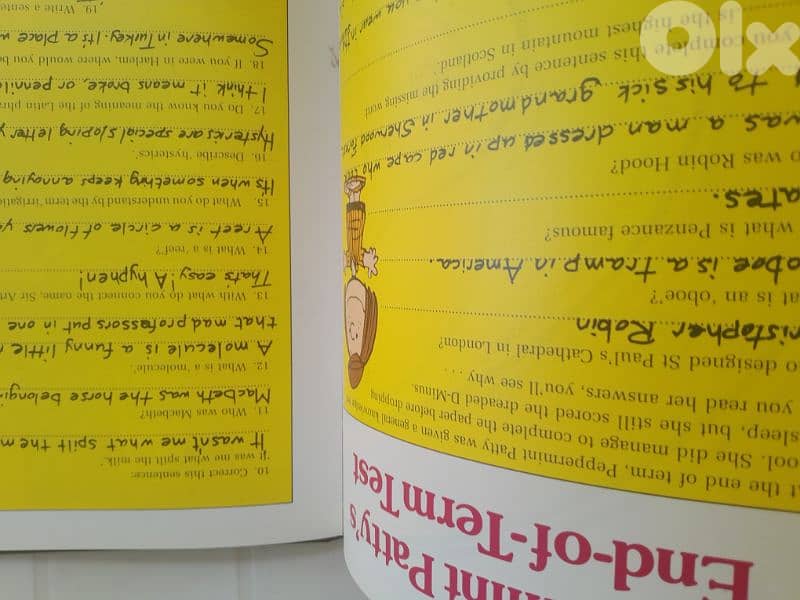 mint Patty's
End-of-Term Test
t the end of term, Peppermint Patty was given a general knowledge
ool. She did manage to complete the paper before dropping
sleep, but she still scored the dreaded D-Minus.
you read her answers, you'll see why . . .
o designed St Paul's Cathedral in London?
ristopher Robin
at is an 'oboe'?
oboe is a tramp in America.
what is Penzance famous?
ates.
o was Robin Hood?
was a man dressed up in red cape who
to his sick grandmother in Sherwood
you complete this sentence by providing the missing word:
is the highest mountain in Scotland.
you wear in
10. Correct this sentence:
'it was me what spilt the milk.
It wasn't me what spilt the m
11. Who was Macbeth?
Macbeth was the horse belongi
12. What is a 'molecule'.
A molecule is a funny little
that mad professors put in one
13. With what do you connect the name, Sir Art
Thats easy! A hyphen!
14. What is a 'reef'?
A reef is a circle of flowers y
15. What do you understand by the term 'irrigati
It's when something keeps annoying
16. Describe 'hysterics'.
Hysterics are special sloping letter
17. Do you know the meaning of the Latin phr
I think it means broke, or pennile
18. If you were in Harlem, where would you be
Somewhere in Turkey. It's a place w
19. Write a sente
OLX